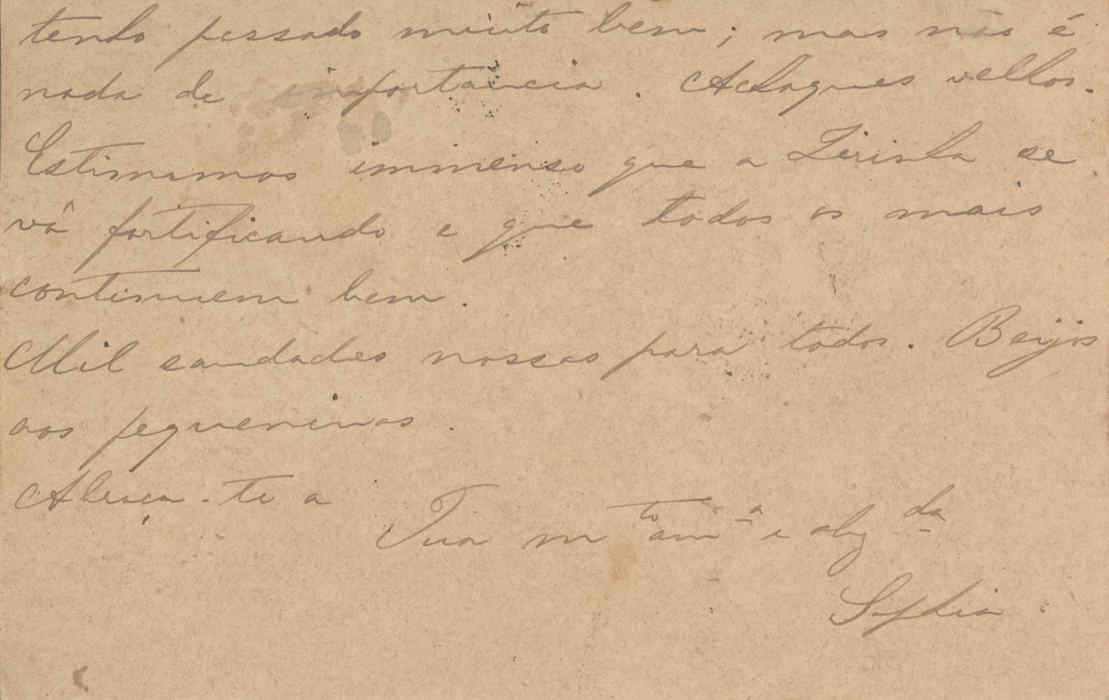 tenho passado muito bem; mas não é
nada de importancia. Achaques velhos.
Estimamos immenso que a Zizinha se
vá fortificando e que todos os mais
continuem bem.
Mil saudades nossas para todos. Beijos
aos pequeninos.
Abraça-te a
Tua mto amª e obgda
Sophia